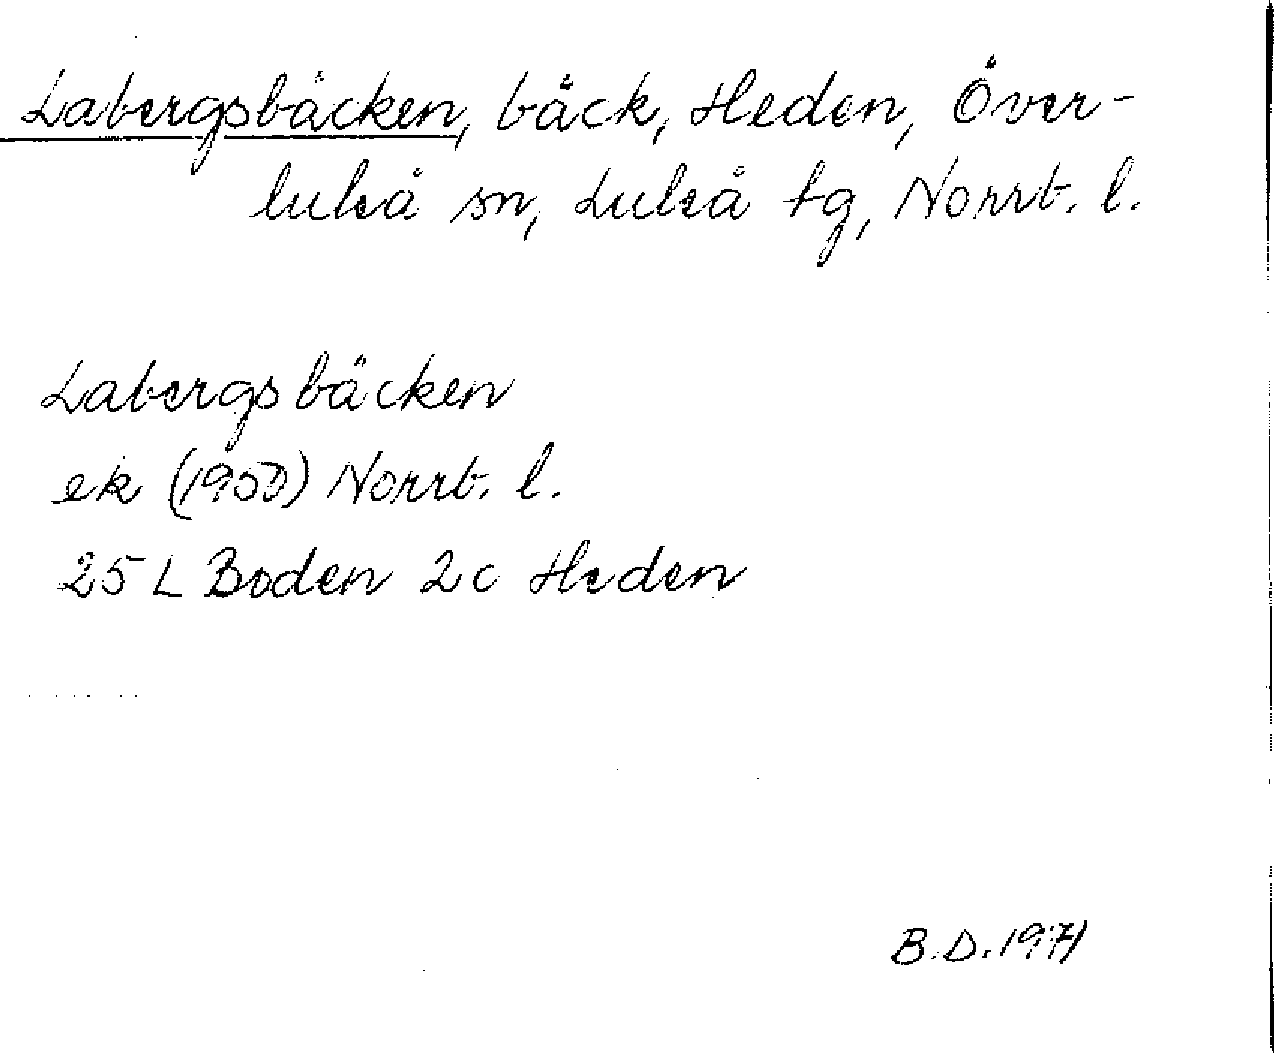 Labergsbäcken, bäck, Heden, Över-
luleå sn, Luleå tg, Norrb. l.
Labergsbäcken
ek (1950) Norrb. l.
25 L Boden 2c Heden
B.D. 1971